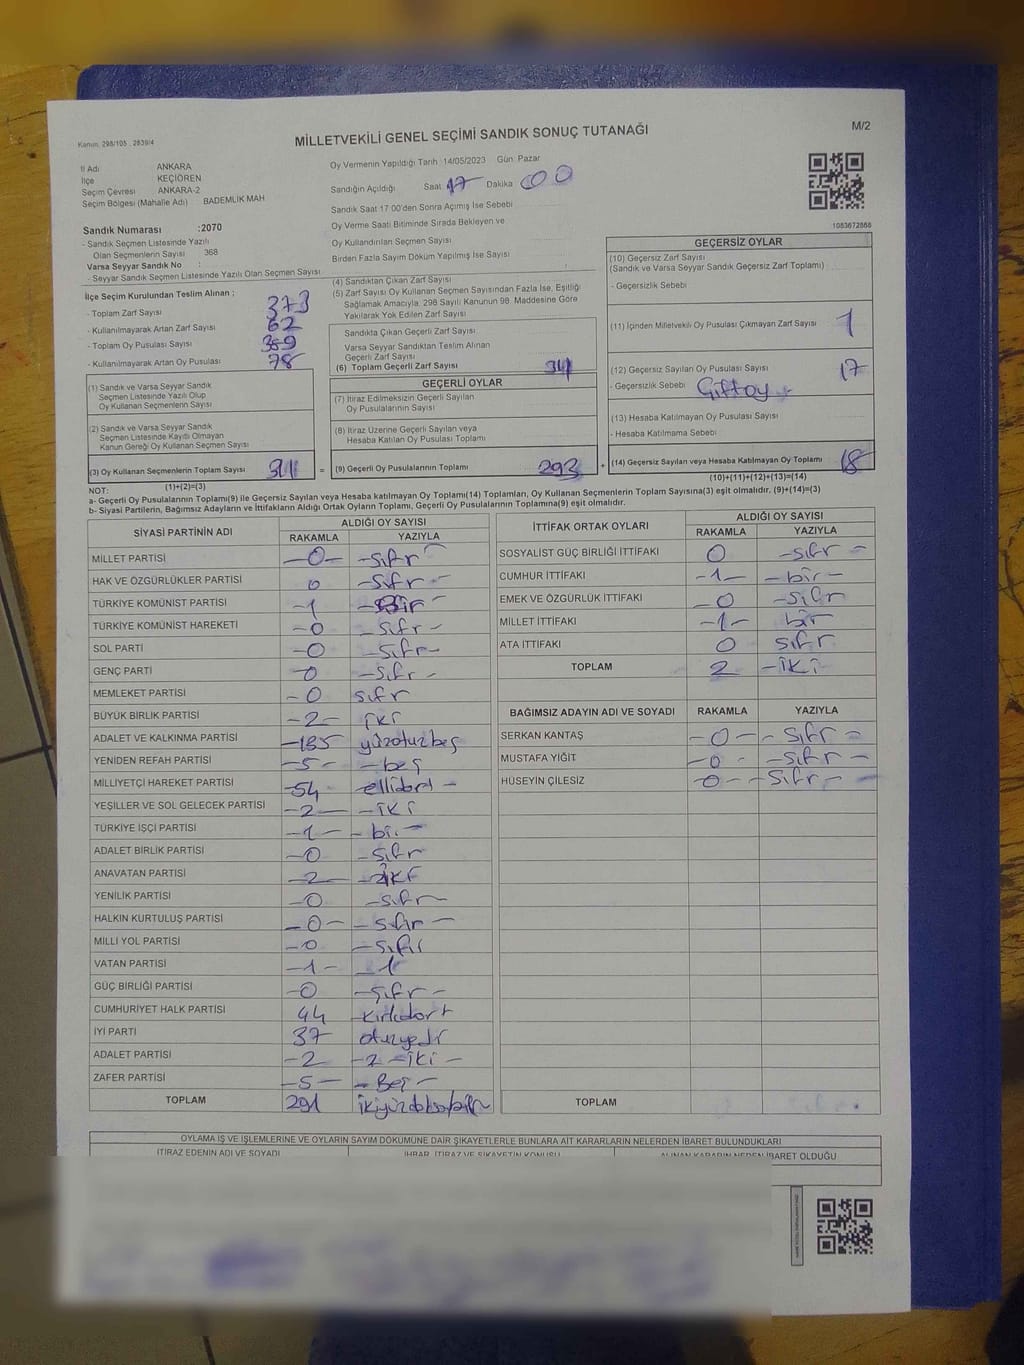 Kanun. 298/105 , 2839/4
MİLLETVEKİLİ GENEL SEÇİMİ SANDIK SONUÇ TUTANAĞI
M/2
İl Adı ANKARA
İlçe KEÇİÖREN
Seçim Çevresi ANKARA-2
Seçim Bölgesi (Mahalle Adı) BADEMLİK MAH
Sandık Numarası :2070
- Sandık Seçmen Listesinde Yazılı
Olan Seçmenlerin Sayısı 368
Varsa Seyyar Sandık No :
- Seyyar Sandık Seçmen Listesinde Yazılı Olan Seçmen Sayısı
Oy Vermenin Yapıldığı Tarih 14/05/2023 Gün: Pazar
Sandığın Açıldığı Saat 17 Dakika 00
Sandık Saat 17 00'den Sonra Açımış İse Sebebi
Oy Verme Saati Bitiminde Sırada Bekleyen ve
Oy Kullandırılan Seçmen Sayısı
Birden Fazla Sayım Döküm Yapılmış İse Sayısı
1083672868
İlçe Seçim Kurulundan Teslim Alınan ;
- Toplam Zarf Sayısı 373
- Kullanılmayarak Artan Zarf Sayısı 62
- Toplam Oy Pusulası Sayısı 389
- Kullanılmayarak Artan Oy Pusulası 78
(1) Sandık ve Varsa Seyyar Sandık
Seçmen Listesinde Yazılı Olup
Oy Kullanan Seçmenlerin Sayısı
(2) Sandık ve Varsa Seyyar Sandık
Seçmen Listesinde Kayıtlı Olmayan
Kanun Gereği Oy Kullanan Seçmen Sayısı
(3) Oy Kullanan Seçmenlerin Toplam Sayısı 311 =
(1)+(2)=(3)
(4) Sandıktan Çıkan Zarf Sayısı
(5) Zarf Sayısı Oy Kullanan Seçmen Sayısından Fazla İse, Eşitliği
Sağlamak Amacıyla, 298 Sayılı Kanunun 98. Maddesine Göre
Yakılarak Yok Edilen Zarf Sayısı
Sandıkta Çıkan Geçerli Zarf Sayısı
Varsa Seyyar Sandıktan Teslim Alınan
Geçerli Zarf Sayısı
(6) Toplam Geçerli Zarf Sayısı 311
GEÇERLİ OYLAR
(7) İtiraz Edilmeksizin Geçerli Sayılan
Oy Pusulalarının Sayısı
(8) İtiraz Üzerine Geçerli Sayılan veya
Hesaba Katılan Oy Pusulası Toplamı
(9) Geçerli Oy Pusulalarının Toplamı 293 +
GEÇERSİZ OYLAR
(10) Geçersiz Zarf Sayısı
(Sandık ve Varsa Seyyar Sandık Geçersiz Zarf Toplamı)
- Geçersizlik Sebebi
(11) İçinden Milletvekili Oy Pusulası Çıkmayan Zarf Sayısı 1
(12) Geçersiz Sayılan Oy Pusulası Sayısı 17
- Geçersizlik Sebebi Çiftoy
(13) Hesaba Katılmayan Oy Pusulası Sayısı
- Hesaba Katılmama Sebebi
(14) Geçersiz Sayılan veya Hesaba Katılmayan Oy Toplamı 18
(10)+(11)+(12)+(13)=(14)
NOT:
a- Geçerli Oy Pusulalarının Toplamı(9) ile Geçersiz Sayılan veya Hesaba katılmayan Oy Toplamı(14) Toplamları, Oy Kullanan Seçmenlerin Toplam Sayısına(3) eşit olmalıdır. (9)+(14)=(3)
b- Siyasi Partilerin, Bağımsız Adayların ve İttifakların Aldığı Ortak Oyların Toplamı, Geçerli Oy Pusulalarının Toplamına(9) eşit olmalıdır.
SİYASİ PARTİNİN ADI ALDIĞI OY SAYISI
RAKAMLA YAZIYLA
MİLLET PARTİSİ -0- -sıfır
HAK VE ÖZGÜRLÜKLER PARTİSİ 0 -sıfır-
TÜRKİYE KOMÜNİST PARTİSİ -1 -Bir-
TÜRKİYE KOMÜNİST HAREKETİ -0 -sıfır-
SOL PARTİ -0 -sıfır-
GENÇ PARTİ -0 -sıfır-
MEMLEKET PARTİSİ -0 sıfır
BÜYÜK BİRLİK PARTİSİ -2- iki
ADALET VE KALKINMA PARTİSİ -135 yüzotuzbeş
YENİDEN REFAH PARTİSİ -5- -beş
MİLLİYETÇİ HAREKET PARTİSİ -54 ellidört-
YEŞİLLER VE SOL GELECEK PARTİSİ -2- -iki
TÜRKİYE İŞÇİ PARTİSİ -1- -bir-
ADALET BİRLİK PARTİSİ -0 -sıfır
ANAVATAN PARTİSİ -2- -iki
YENİLİK PARTİSİ -0 -sıfır-
HALKIN KURTULUŞ PARTİSİ -0- -sıfır-
MİLLİ YOL PARTİSİ -0 -sıfır
VATAN PARTİSİ -1- -1
GÜÇ BİRLİĞİ PARTİSİ -0 -sıfır-
CUMHURİYET HALK PARTİSİ 44 kırkdört
İYİ PARTİ 37 otuzyedi
ADALET PARTİSİ -2 -2-iki-
ZAFER PARTİSİ -5- -Beş-
TOPLAM 291 ikiyüzdoksanbir
İTTİFAK ORTAK OYLARI ALDIĞI OY SAYISI
RAKAMLA YAZIYLA
SOSYALİST GÜÇ BİRLİĞİ İTTİFAKI 0 -sıfır-
CUMHUR İTTİFAKI -1- -bir-
EMEK VE ÖZGÜRLÜK İTTİFAKI -0 -sıfır
MİLLET İTTİFAKI -1- bir
ATA İTTİFAKI 0 sıfır
TOPLAM 2 -iki
BAĞIMSIZ ADAYIN ADI VE SOYADI RAKAMLA YAZIYLA
SERKAN KANTAŞ -0- -sıfır-
MUSTAFA YİĞİT -0- -sıfır-
HÜSEYİN ÇİLESİZ -0- -sıfır-
TOPLAM
OYLAMA İŞ VE İŞLEMLERİNE VE OYLARIN SAYIM DÖKÜMÜNE DAİR ŞİKAYETLERLE BUNLARA AİT KARARLARIN NELERDEN İBARET BULUNDUKLARI
İTİRAZ EDENİN ADI VE SOYADI İHBAR, İTİRAZ VE ŞİKAYETİN KONUSU ALINAN KARARIN NEDEN İBARET OLDUĞU